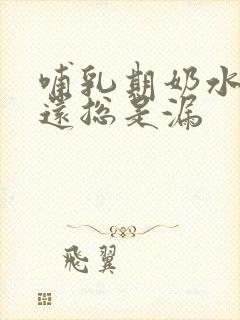 哺乳期奶水
還总是漏
飛翼